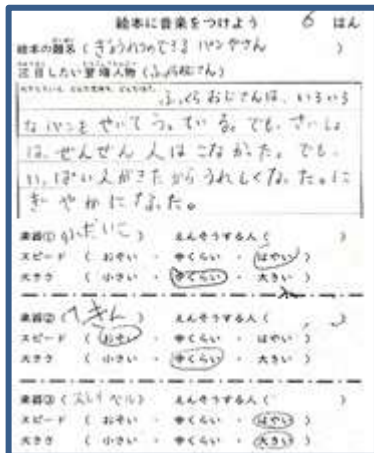 絵本に音楽をつけよう 6 はん
絵本の題名 ( ぎょうれつのできる パンやさん )
注目したい登場人物 (ふくらおじさん)
ふくらおじさんは、いろいろ
なパンをやいてうっている。でも、さいしょ
は、ぜんぜん人はこなかった。でも、
いっぱい人がきたからうれしくなった。に
ぎやかになった。
楽器① (小だいこ) えんそうする人 ( )
スピード ( おそい ・ 中くらい ・ はやい )
大きさ ( 小さい ・ 中くらい ・ 大きい )
楽器② ( もっきん ) えんそうする人 ( )
スピード ( おそい ・ 中くらい ・ はやい )
大きさ ( 小さい ・ 中くらい ・ 大きい )
楽器③ (スレイベル) えんそうする人 ( )
スピード ( おそい ・ 中くらい ・ はやい )
大きさ ( 小さい ・ 中くらい ・ 大きい )